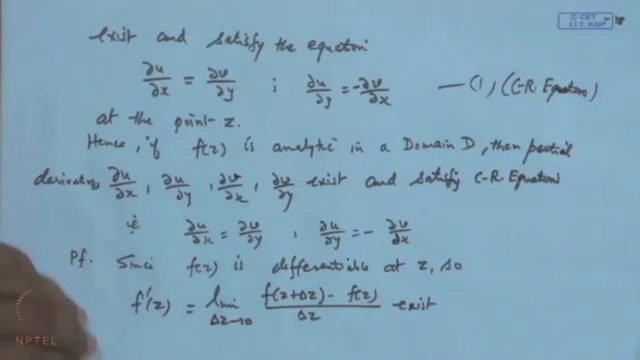 © CET
I.I.T. KGP
exist and satisfy the equation
∂u/∂x = ∂v/∂y ; ∂u/∂y = -∂v/∂x — (1) (C-R. Equations)
at the point z.
Hence, if f(z) is analytic in a Domain D, then partial
derivatives ∂u/∂x, ∂u/∂y, ∂v/∂x, ∂v/∂y exist and satisfy C-R. Equations
ie ∂u/∂x = ∂v/∂y , ∂u/∂y = - ∂v/∂x
Pf. Since f(z) is differentiable at z, so
f'(z) = lim Δz→0 (f(z+Δz) - f(z))/Δz exist
NPTEL